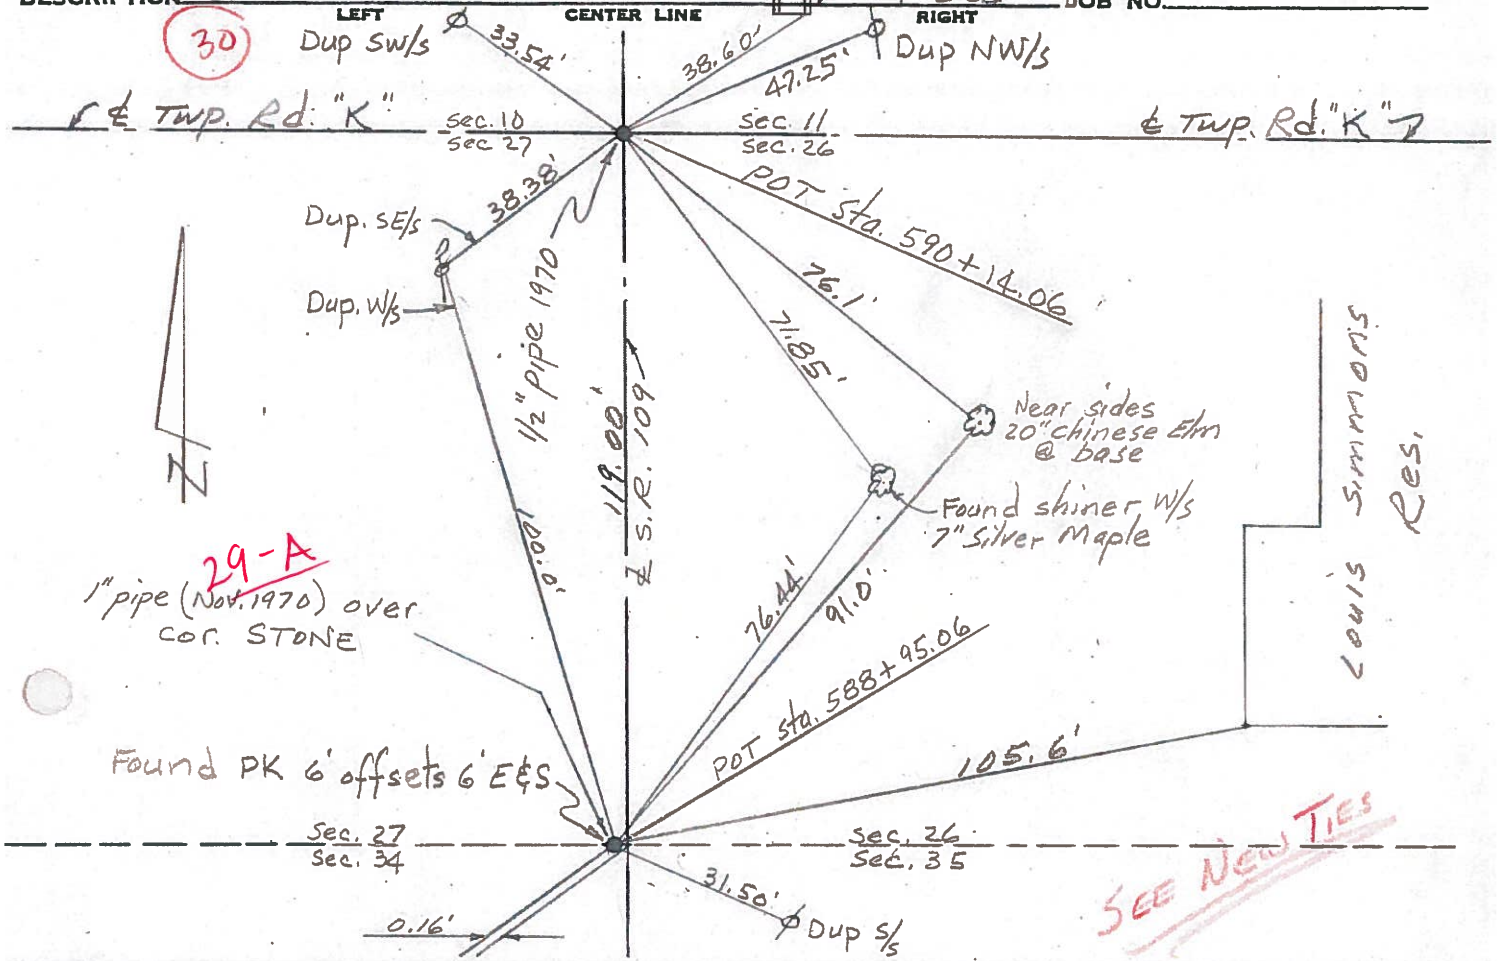 DESCRIPTION
JOB NO.
LEFT
CENTER LINE
RIGHT
30
Dup SW/s
33.54'
38.60'
47.25'
Dup NW/s
℄ Twp. Rd. "K"
Sec. 10
Sec 27
Sec. 11
Sec. 26
℄ Twp. Rd. "K"
38.38'
Dup. SE/s
Dup. W/s
1/2" pipe 1970
POT sta. 590+14.06
76.1'
71.85'
119.00'
℄ S.R. 109
N
Near sides
20" chinese Elm
@ base
Found shiner W/s
7" Silver Maple
Louis Simmons
Res.
29-A
1" pipe (Nov. 1970) over
cor. STONE
76.44'
91.0'
POT sta. 588+95.06
105.6'
Found PK 6' offsets 6' E&S
Sec. 27
Sec. 34
Sec. 26
Sec. 35
31.50'
Dup S/s
0.16'
SEE NEW TIES